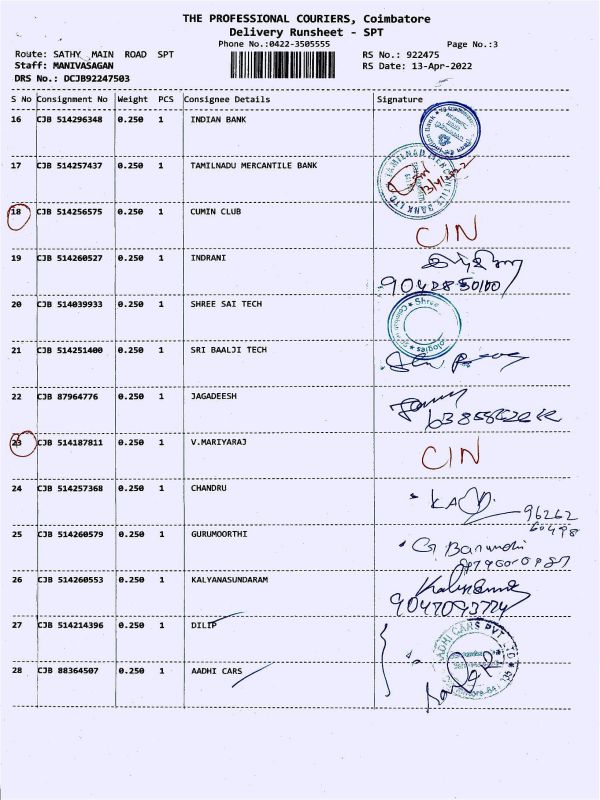 THE PROFESSIONAL COURIERS, Coimbatore
Delivery Runsheet - SPT
Phone No.:0422-3505555
Page No.:3
Route: SATHY MAIN ROAD SPT
RS No.: 922475
Staff: MANIVASAGAN
RS Date: 13-Apr-2022
DRS No.: DCJB92247503
S No Consignment No Weight PCS Consignee Details Signature
16 CJB 514296348 0.250 1 INDIAN BANK
17 CJB 514257437 0.250 1 TAMILNADU MERCANTILE BANK
18 CJB 514256575 0.250 1 CUMIN CLUB CIN
19 CJB 514260527 0.250 1 INDRANI
20 CJB 514039933 0.250 1 SHREE SAI TECH
21 CJB 514251400 0.250 1 SRI BAALJI TECH
22 CJB 87964776 0.250 1 JAGADEESH
23 CJB 514187811 0.250 1 V.MARIYARAJ CIN
24 CJB 514257368 0.250 1 CHANDRU
25 CJB 514260579 0.250 1 GURUMOORTHI
26 CJB 514260553 0.250 1 KALYANASUNDARAM
27 CJB 514214396 0.250 1 DILIP
28 CJB 88364507 0.250 1 AADHI CARS